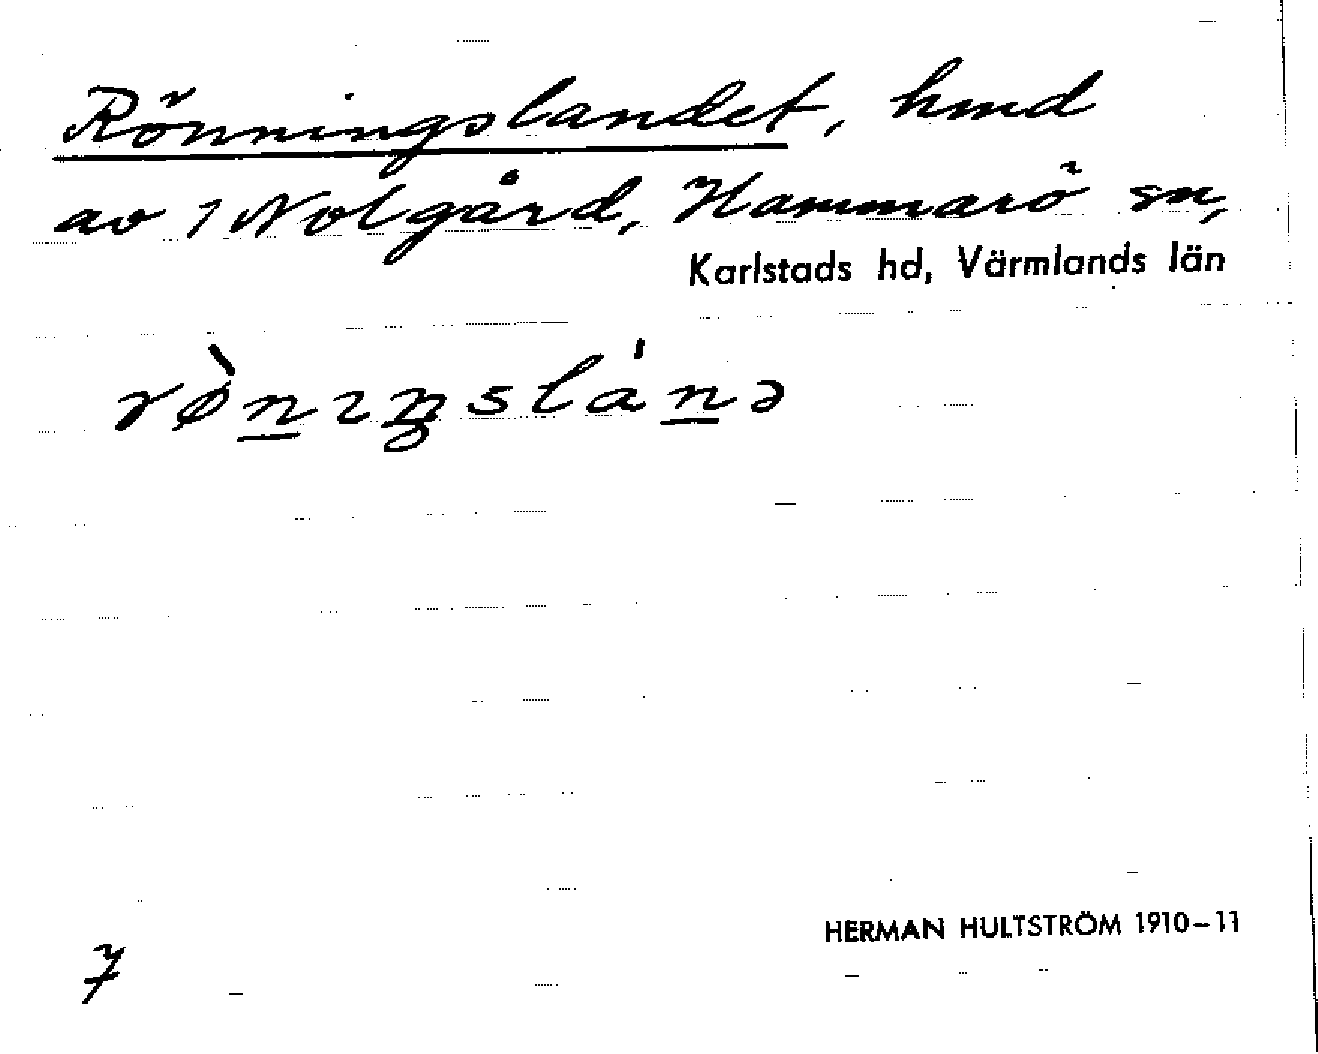 Rönningslandet, hmd
av 1 Nolgård, Hammarö sn,
Karlstads hd, Värmlands län
rø̀n̲ɪŋslán̲ə
HERMAN HULTSTRÖM 1910–11
7